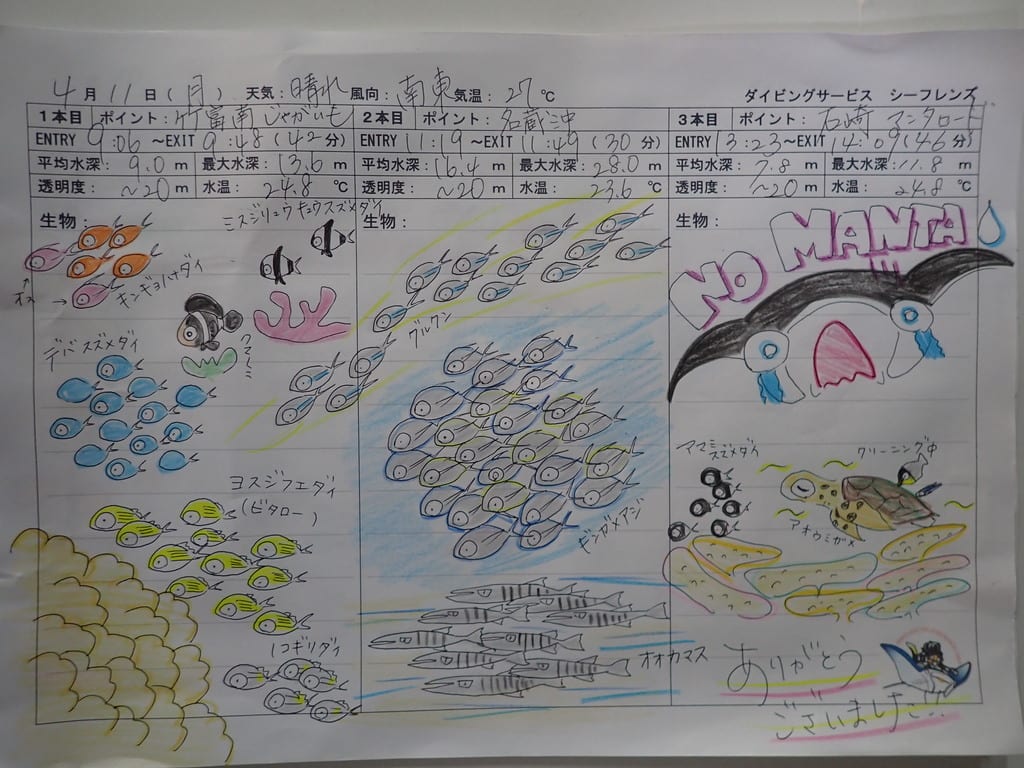 4月11日(月) 天気：晴れ 風向：南東 気温：27℃
ダイビングサービス シーフレンズ
1本目 ポイント：竹富南 じゃがいも
ENTRY 9:06 ～EXIT 9:48 (42分)
平均水深：9.0m 最大水深：13.6m
透明度：～20m 水温：24.8℃
生物：
ミスジリュウキュウスズメダイ
キンギョハナダイ
オス
クマノミ
デバスズメダイ
ヨスジフエダイ
(ビタロー)
ノコギリダイ
2本目 ポイント：名蔵沖
ENTRY 11:19 ～EXIT 11:49 (30分)
平均水深：16.4m 最大水深：28.0m
透明度：～20m 水温：23.6℃
生物：
グルクン
ギンガメアジ
オオカマス
3本目 ポイント：石崎 マンタロード
ENTRY 13:23～EXIT 14:09 (46分)
平均水深：7.8m 最大水深：11.8m
透明度：～20m 水温：24.8℃
生物：
NO MANTA!!!
アマミスズメダイ
クリーニング中
アオウミガメ
ありがとう
ございました!!